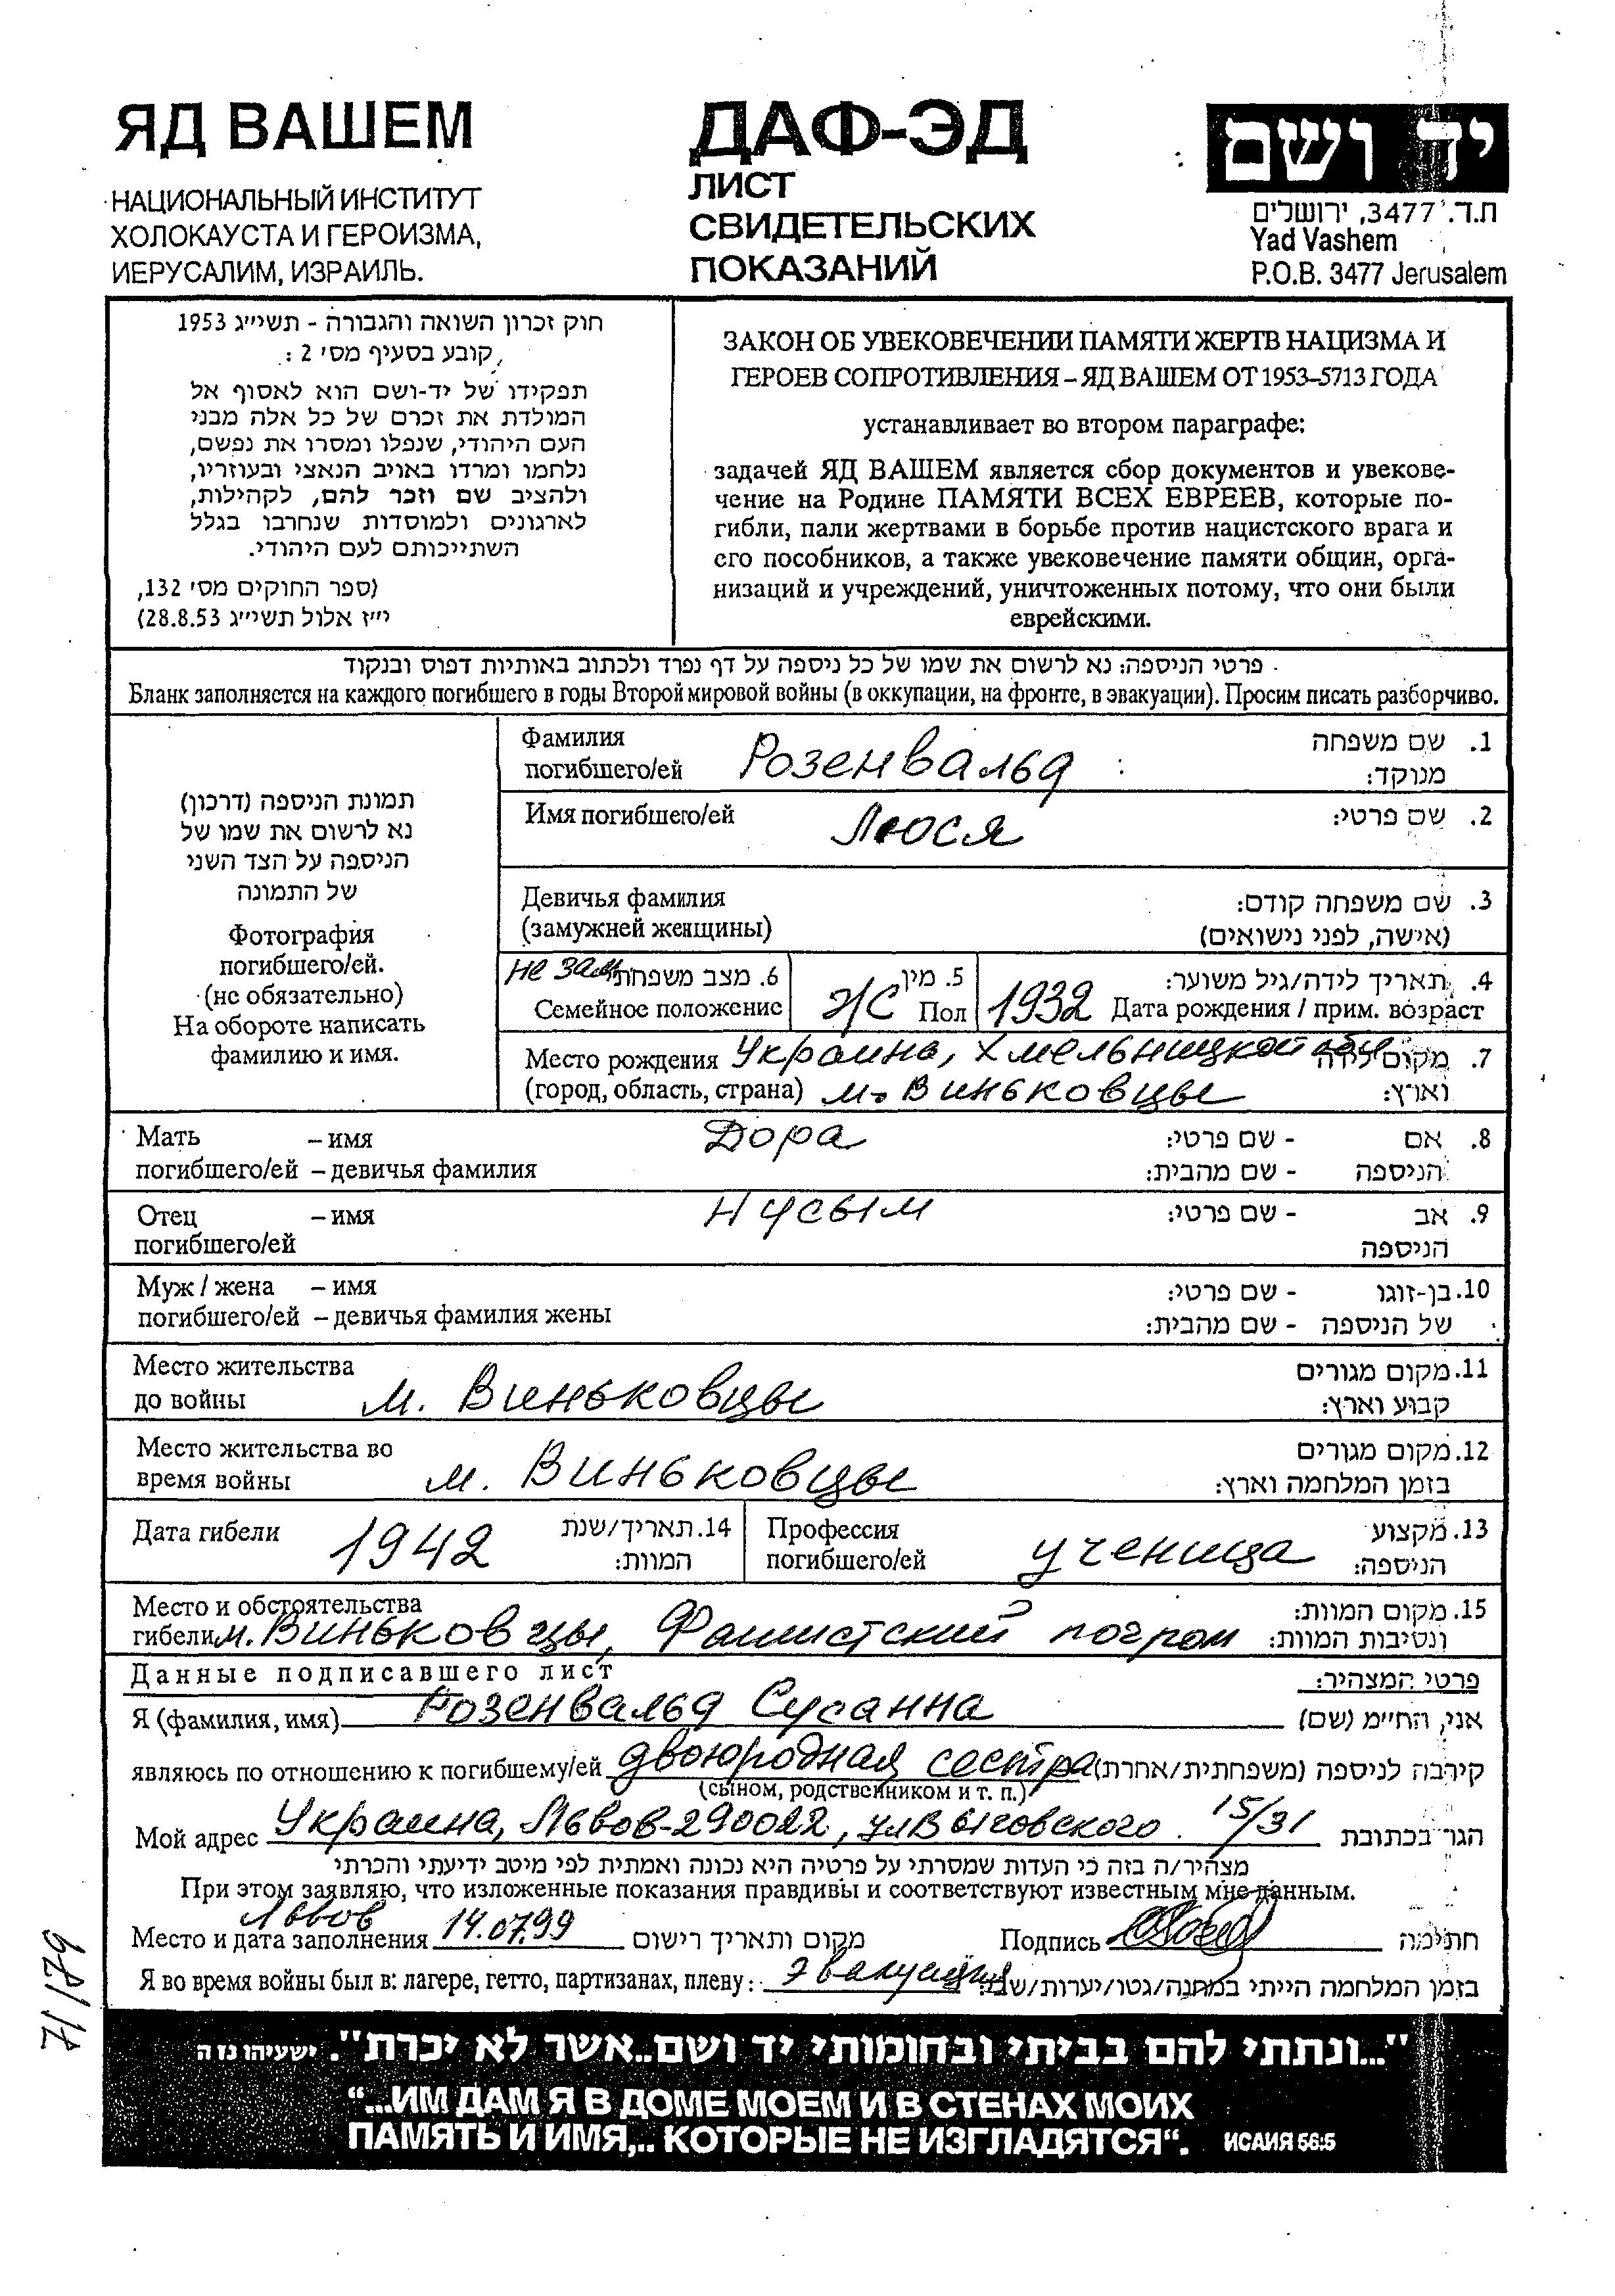 ЯД ВАШЕМ
НАЦИОНАЛЬНЫЙ ИНСТИТУТ
ХОЛОКАУСТА И ГЕРОИЗМА,
ИЕРУСАЛИМ, ИЗРАИЛЬ.
ДАФ-ЭД
ЛИСТ
СВИДЕТЕЛЬСКИХ
ПОКАЗАНИЙ
יד ושם
ת.ד. 3477, ירושלים
Yad Vashem
P.O.B. 3477 Jerusalem
חוק זכרון השואה והגבורה - תשי״ג 1953
קובע בסעיף מס׳ 2 :
תפקידו של יד-ושם הוא לאסוף אל
המולדת את זכרם של כל אלה מבני
העם היהודי, שנפלו ומסרו את נפשם,
נלחמו ומרדו באויב הנאצי ובעוזריו,
ולהציב שם וזכר להם, לקהילות,
לארגונים ולמוסדות שנחרבו בגלל
השתייכותם לעם היהודי.
(ספר החוקים מס׳ 132,
י״ז אלול תשי״ג 28.8.53)
ЗАКОН ОБ УВЕКОВЕЧЕНИИ ПАМЯТИ ЖЕРТВ НАЦИЗМА И
ГЕРОЕВ СОПРОТИВЛЕНИЯ – ЯД ВАШЕМ ОТ 1953–5713 ГОДА
устанавливает во втором параграфе:
задачей ЯД ВАШЕМ является сбор документов и увекове-
чение на Родине ПАМЯТИ ВСЕХ ЕВРЕЕВ, которые по-
гибли, пали жертвами в борьбе против нацистского врага и
его пособников, а также увековечение памяти общин, орга-
низаций и учреждений, уничтоженных потому, что они были
еврейскими.
פרטי הניספה: נא לרשום את שמו של כל ניספה על דף נפרד ולכתוב באותיות דפוס ובנקוד
Бланк заполняется на каждого погибшего в годы Второй мировой войны (в оккупации, на фронте, в эвакуации). Просим писать разборчиво.
תמונת הניספה (דרכון)
נא לרשום את שמו של
הניספה על הצד השני
של התמונה
Фотография
погибшего/ей.
(не обязательно)
На обороте написать
фамилию и имя.
Фамилия
погибшего/ей Розенвальд
1. שם משפחה
מנוקד:
Имя погибшего/ей Люся 2. שם פרטי:
Девичья фамилия
(замужней женщины)
3. שם משפחה קודם:
(אישה, לפני נישואים)
не зам 6. מצב משפחתי
Семейное положение
5. מין
ж/С Пол
4. תאריך לידה/גיל משוער:
1932 Дата рождения / прим. возраст
Место рождения Украина, Хмельницкой обл
(город, область, страна) м. Виньковцы
7. מקום לידה
וארץ:
Мать – имя Дора
погибшего/ей – девичья фамилия
8. אם - שם פרטי:
הניספה - שם מהבית:
Отец – имя Нусым
погибшего/ей
9. אב - שם פרטי:
הניספה
Муж / жена – имя
погибшего/ей – девичья фамилия жены
10. בן-זוגו - שם פרטי:
של הניספה - שם מהבית:
Место жительства
до войны м. Виньковцы
11. מקום מגורים
קבוע וארץ:
Место жительства во
время войны м. Виньковцы
12. מקום מגורים
בזמן המלחמה וארץ:
Дата гибели 1942
14. תאריך/שנת
המוות:
Профессия
погибшего/ей ученица
13. מקצוע
הניספה:
Место и обстоятельства
гибели м. Виньковцы, Фашистский погром
15. מקום המוות:
ונסיבות המוות:
Данные подписавшего лист פרטי המצהיר:
Я (фамилия, имя) Розенвальд Сусанна אני, החי״מ (שם)
являюсь по отношению к погибшему/ей двоюродная сестра קירבה לניספה (משפחתית/אחרת)
(сыном, родственником и т. п.)
Мой адрес Украина, Львов-290022, ул Выговского 15/31 הגר בכתובת
מצהיר/ה בזה כי העדות שמסרתי על פרטיה היא נכונה ואמתית לפי מיטב ידיעתי והכרתי
При этом заявляю, что изложенные показания правдивы и соответствуют известным мне данным.
Львов
Место и дата заполнения 14.07.99 מקום ותאריך רישום Подпись חתימה
Я во время войны был в: лагере, гетто, партизанах, плену: эвакуация בזמן המלחמה הייתי במחנה/גטו/יערות/שבי:
71/179
"...ונתתי להם בביתי ובחומותי יד ושם..אשר לא יכרת". ישעיהו נו ה
“...ИМ ДАМ Я В ДОМЕ МОЕМ И В СТЕНАХ МОИХ
ПАМЯТЬ И ИМЯ,.. КОТОРЫЕ НЕ ИЗГЛАДЯТСЯ“. ИСАИЯ 56:5